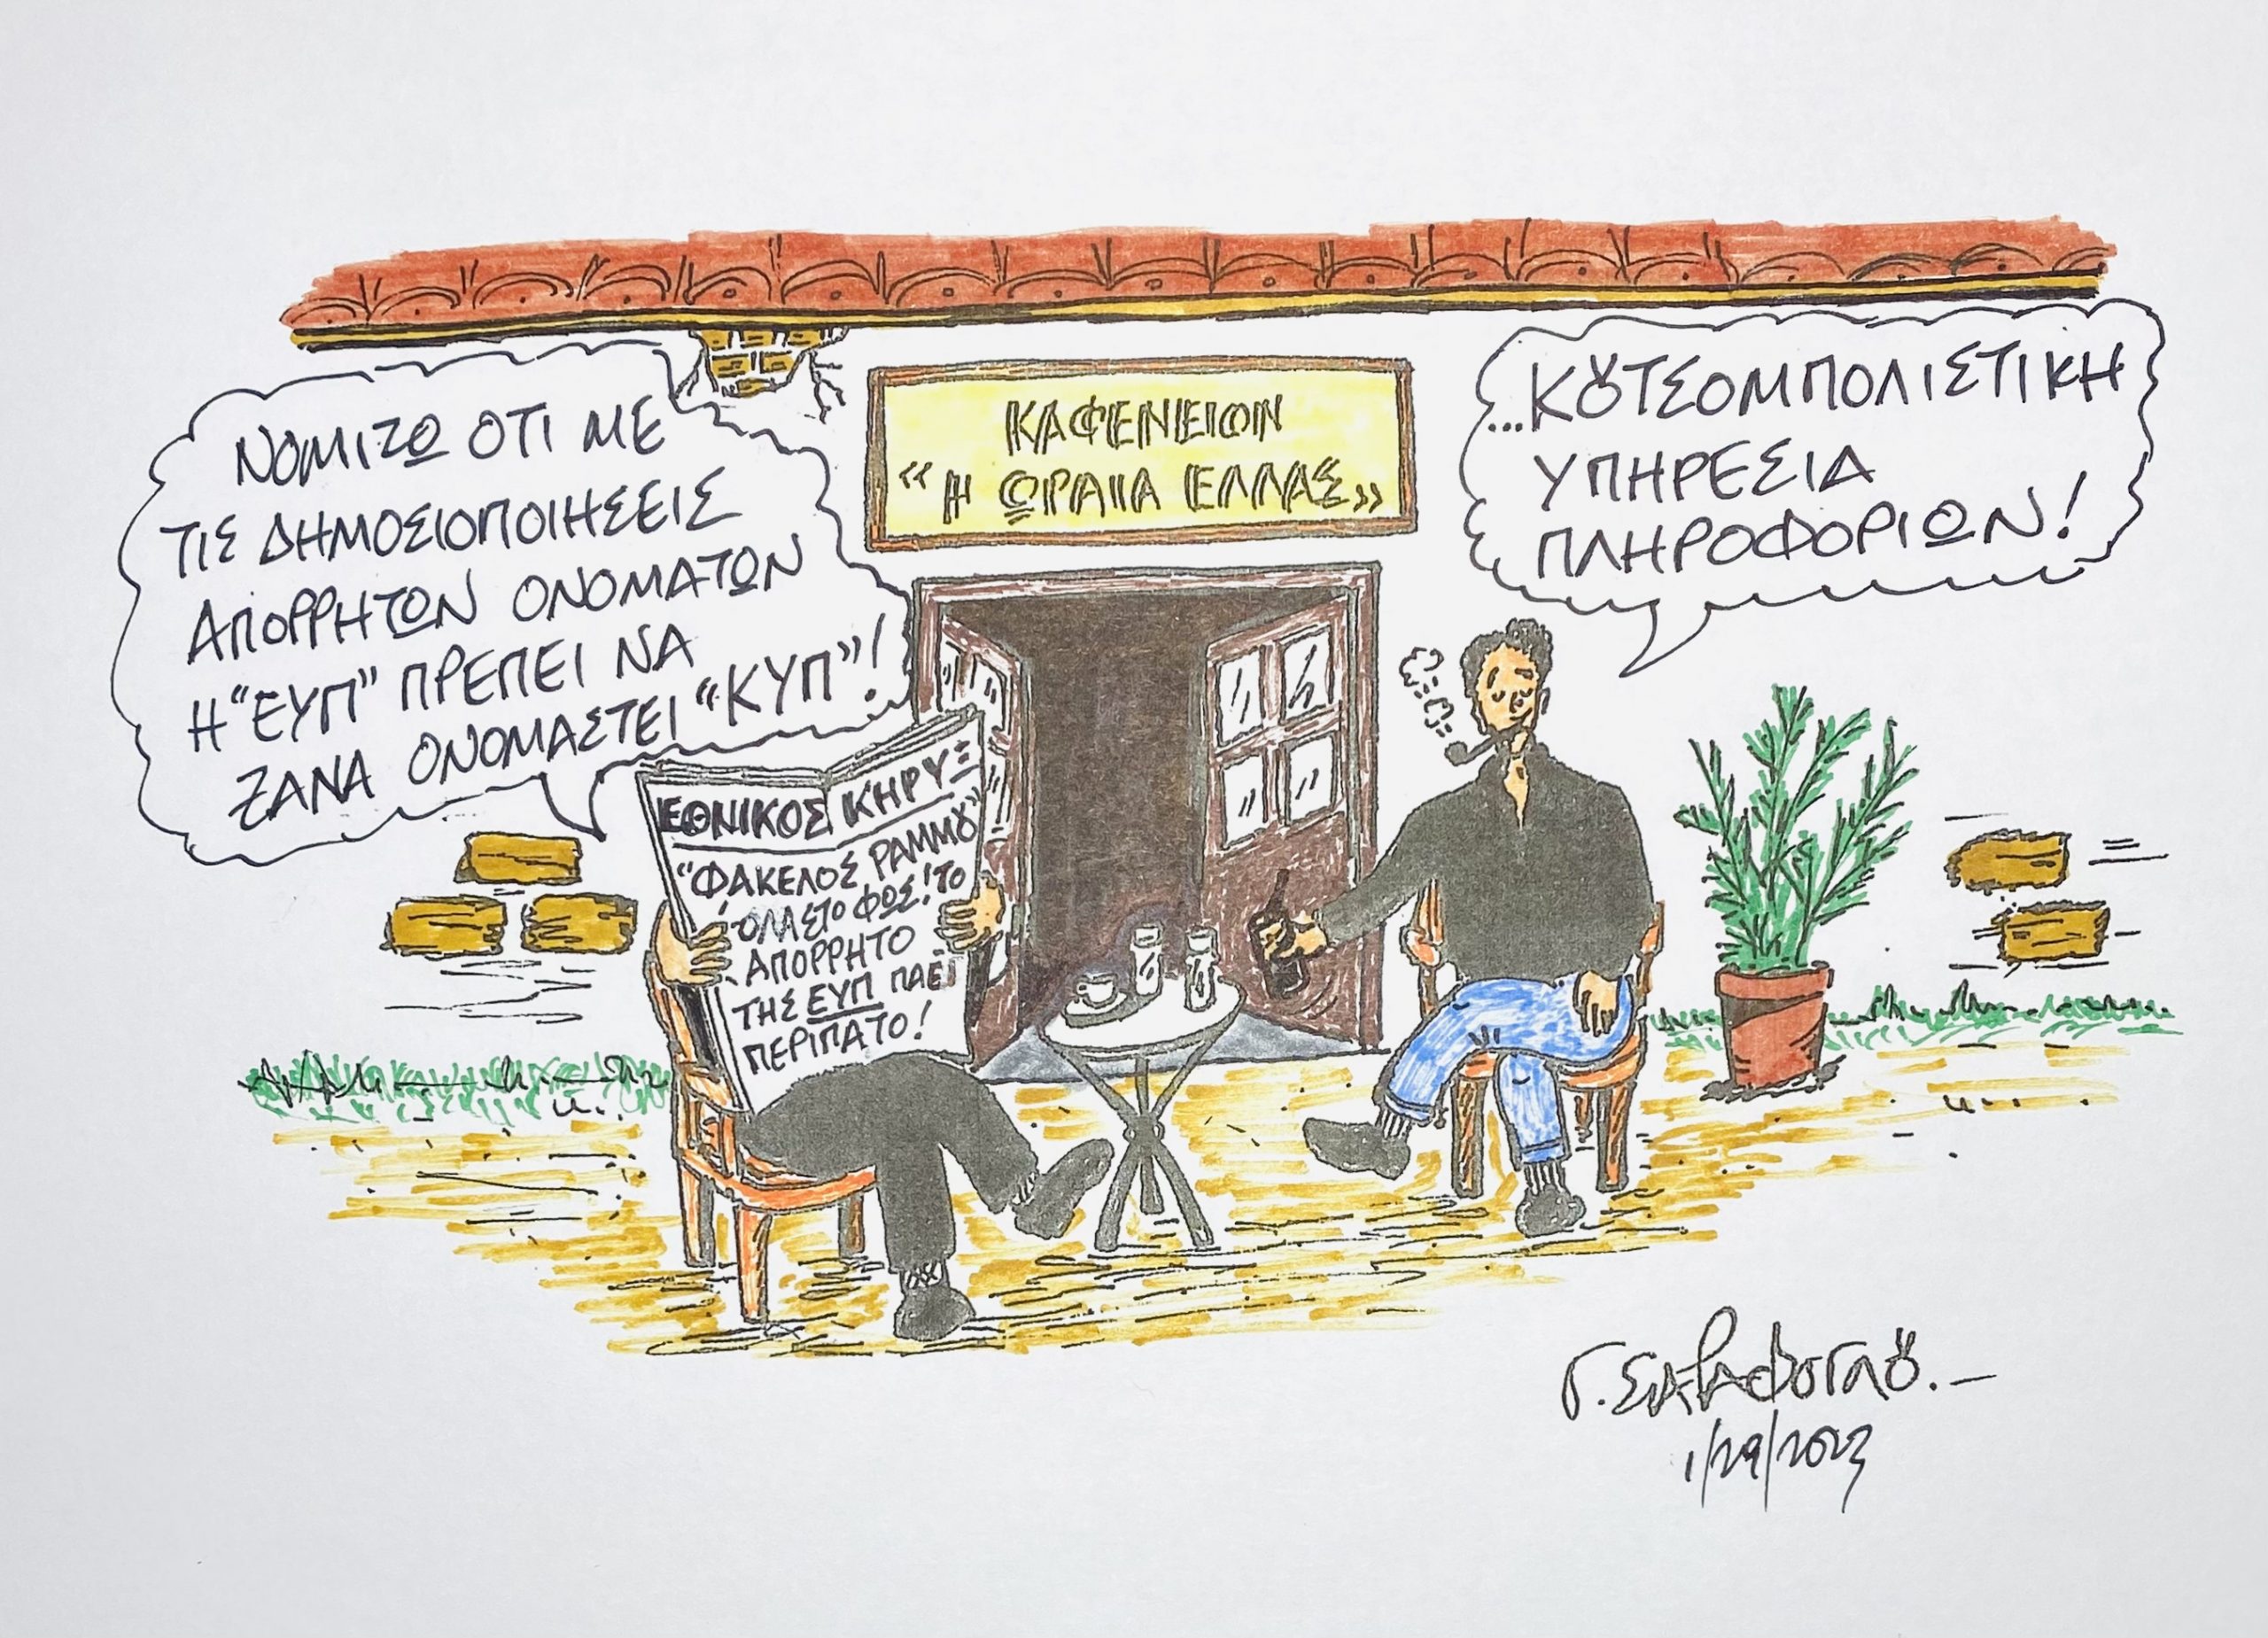 ΝΟΜΙΖΩ ΟΤΙ ΜΕ
ΤΙΣ ΔΗΜΟΣΙΟΠΟΙΗΣΕΙΣ
ΑΠΟΡΡΗΤΩΝ ΟΝΟΜΑΤΩΝ
Η "ΕΥΠ" ΠΡΕΠΕΙ ΝΑ
ΞΑΝΑ ΟΝΟΜΑΣΤΕΙ "ΚΥΠ"!
ΚΑΦΕΝΕΙΟΝ
"Η ΩΡΑΙΑ ΕΛΛΑΣ"
...ΚȢΤΣΟΜΠΟΛΙΣΤΙΚΗ
ΥΠΗΡΕΣΙΑ
ΠΛΗΡΟΦΟΡΙΩΝ!
ΕΘΝΙΚΟΣ ΚΗΡΥΞ
"ΦΑΚΕΛΟΣ ΡΑΜΜȢ"
ΌΛΑ ΣΤΟ ΦΩΣ! ΤΟ
ΑΠΟΡΡΗΤΟ
ΤΗΣ ΕΥΠ ΠΑΕΙ
ΠΕΡΙΠΑΤΟ!
Γ. ΣΑΡΑΦΟΓΛȢ.—
1/29/2023